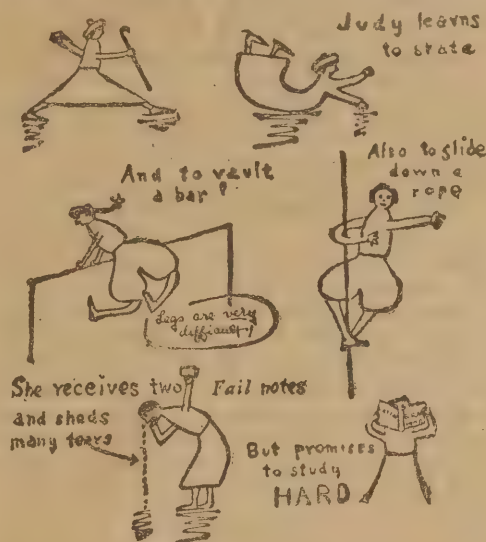 Judy learns
to skate
And to vault
a bar!
Also to slide
down a
rope
Legs are very
difficult!
She receives two Fail notes
and sheds
many tears
But promises
to study
HARD